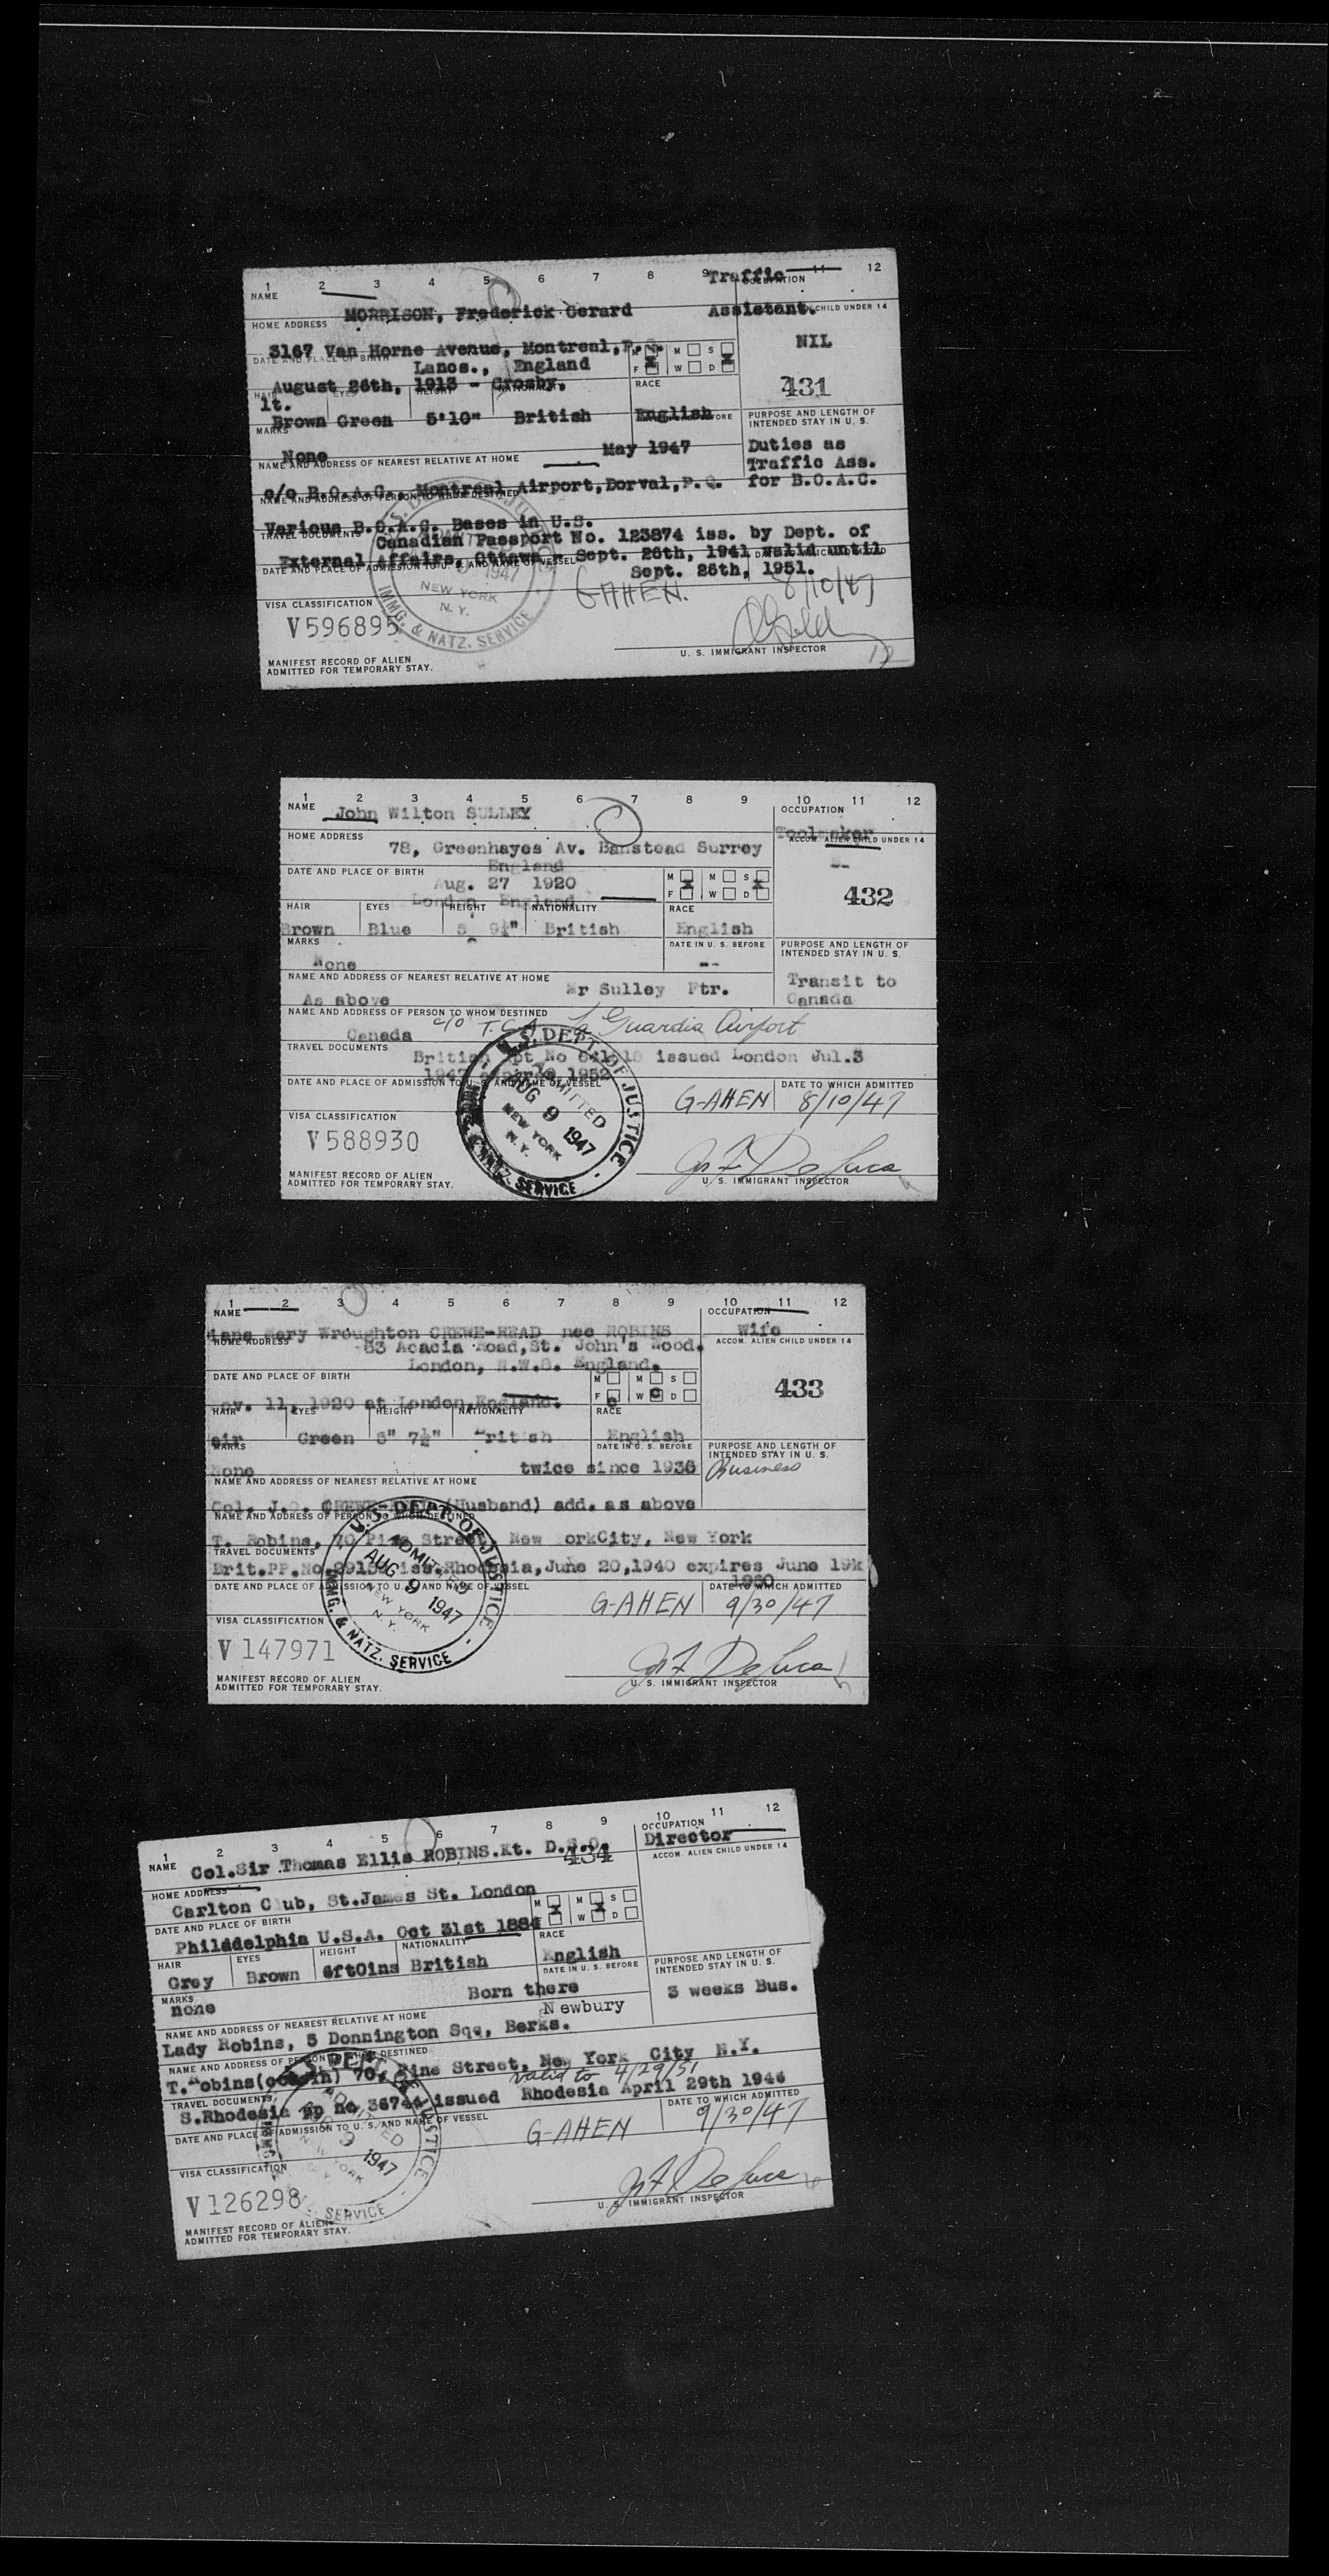 1 2 3 4 5 6 7 8 9 11 12
NAME OCCUPATION
Traffic
MORRISON, Frederick Gerard Assistant.
HOME ADDRESS CHILD UNDER 14
3167 Van Horne Avenue, Montreal, P.Q. NIL
DATE AND PLACE OF BIRTH M F M W S D
Lancs., England
August 26th, 1913 - Crosby, 431
HAIR EYES HEIGHT NATIONALITY RACE
lt.
Brown Green 5'10" British English
MARKS PURPOSE AND LENGTH OF
INTENDED STAY IN U. S.
None May 1947 Duties as
NAME AND ADDRESS OF NEAREST RELATIVE AT HOME Traffic Ass.
c/o B.O.A.C., Montreal Airport, Dorval, P.Q. for B.O.A.C.
NAME AND ADDRESS OF PERSON TO WHOM DESTINED
Various B.O.A.C. Bases in U.S.
TRAVEL DOCUMENTS Canadian Passport No. 123874 iss. by Dept. of
External affairs, Ottawa - Sept. 26th, 1941 valid until
DATE AND PLACE OF ADMISSION TO U. S. AND NAME OF VESSEL Sept. 26th, 1951.
1947 G-AHEN. 8/10/47
NEW YORK
N. Y.
IMMG. & NATZ. SERVICE
VISA CLASSIFICATION
V596895
U. S. IMMIGRANT INSPECTOR
MANIFEST RECORD OF ALIEN
ADMITTED FOR TEMPORARY STAY.
1 2 3 4 5 6 7 8 9 10 11 12
NAME John Wilton SULLEY OCCUPATION
Toolmaker
HOME ADDRESS ACCOM. ALIEN CHILD UNDER 14
78, Greenhayes Av. Banstead Surrey --
England
DATE AND PLACE OF BIRTH M F M W S D
Aug. 27 1920 432
London England
HAIR EYES HEIGHT NATIONALITY RACE
Brown Blue 5 9½" British English
MARKS DATE IN U. S. BEFORE PURPOSE AND LENGTH OF
INTENDED STAY IN U. S.
None --
NAME AND ADDRESS OF NEAREST RELATIVE AT HOME Transit to
As above Mr Sulley Ftr. Canada
NAME AND ADDRESS OF PERSON TO WHOM DESTINED
Canada c/o T.C.A. La Guardia Airport
TRAVEL DOCUMENTS
British issued London Jul.3
1947 1952
DATE AND PLACE OF ADMISSION TO U. S. AND NAME OF VESSEL DATE TO WHICH ADMITTED
G-AHEN 8/10/47
U.S. DEPT. OF JUSTICE
ADMITTED
AUG 9 1947
NEW YORK
N. Y.
SERVICE
VISA CLASSIFICATION
V588930
Jn F De Luca
U. S. IMMIGRANT INSPECTOR
MANIFEST RECORD OF ALIEN
ADMITTED FOR TEMPORARY STAY.
1 2 3 4 5 6 7 8 9 10 11 12
NAME OCCUPATION
Mary Wroughton CREWE-READ nee ROBINS Wife
HOME ADDRESS 63 Acacia Road, St. John's Wood. ACCOM. ALIEN CHILD UNDER 14
London, N.W.8. England.
DATE AND PLACE OF BIRTH M F M W S D
ov. 11, 1920 at London, England. 433
HAIR EYES HEIGHT NATIONALITY RACE
air Green 5" 7½" British English
MARKS DATE IN U. S. BEFORE PURPOSE AND LENGTH OF
INTENDED STAY IN U. S.
None twice since 1936 Business
NAME AND ADDRESS OF NEAREST RELATIVE AT HOME
Col. J.O. CREWE-READ (Husband) add. as above
NAME AND ADDRESS OF PERSON TO WHOM DESTINED
T. Robins, 70 Pine Street, New YorkCity, New York
TRAVEL DOCUMENTS
Brit.PP.No iss.Rhodesia, June 20,1940 expires June 19k
1950
DATE AND PLACE OF ADMISSION TO U. S. AND NAME OF VESSEL DATE TO WHICH ADMITTED
G-AHEN 9/30/47
U.S. DEPT. OF JUSTICE
ADMITTED
AUG 9 1947
NEW YORK
N. Y.
IMMG. & NATZ. SERVICE
VISA CLASSIFICATION
V147971
Jn F De Luca
U. S. IMMIGRANT INSPECTOR
MANIFEST RECORD OF ALIEN
ADMITTED FOR TEMPORARY STAY.
1 2 3 4 5 6 7 8 9 10 11 12
NAME Col.Sir Thomas Ellis ROBINS.Kt. D.S.O. OCCUPATION
434 Director
HOME ADDRESS ACCOM. ALIEN CHILD UNDER 14
Carlton Club, St.James St. London
DATE AND PLACE OF BIRTH M F M W S D
Philadelphia U.S.A. Oct 31st 1884
HAIR EYES HEIGHT NATIONALITY RACE
Grey Brown 6ft0ins British English
MARKS DATE IN U. S. BEFORE PURPOSE AND LENGTH OF
INTENDED STAY IN U. S.
none Born there 3 weeks Bus.
NAME AND ADDRESS OF NEAREST RELATIVE AT HOME Newbury
Lady Robins, 5 Donnington Sqe, Berks.
NAME AND ADDRESS OF PERSON TO WHOM DESTINED
T.Robins(cousin) 70, Pine Street, New York City N.Y.
valid to 4/29/51
TRAVEL DOCUMENTS
S.Rhodesia pp no 36744 issued Rhodesia April 29th 1946
DATE AND PLACE OF ADMISSION TO U. S. AND NAME OF VESSEL DATE TO WHICH ADMITTED
G-AHEN 9/30/47
9 1947
SERVICE
VISA CLASSIFICATION
V126298
Jn F De Luca
U. S. IMMIGRANT INSPECTOR
MANIFEST RECORD OF ALIEN
ADMITTED FOR TEMPORARY STAY.